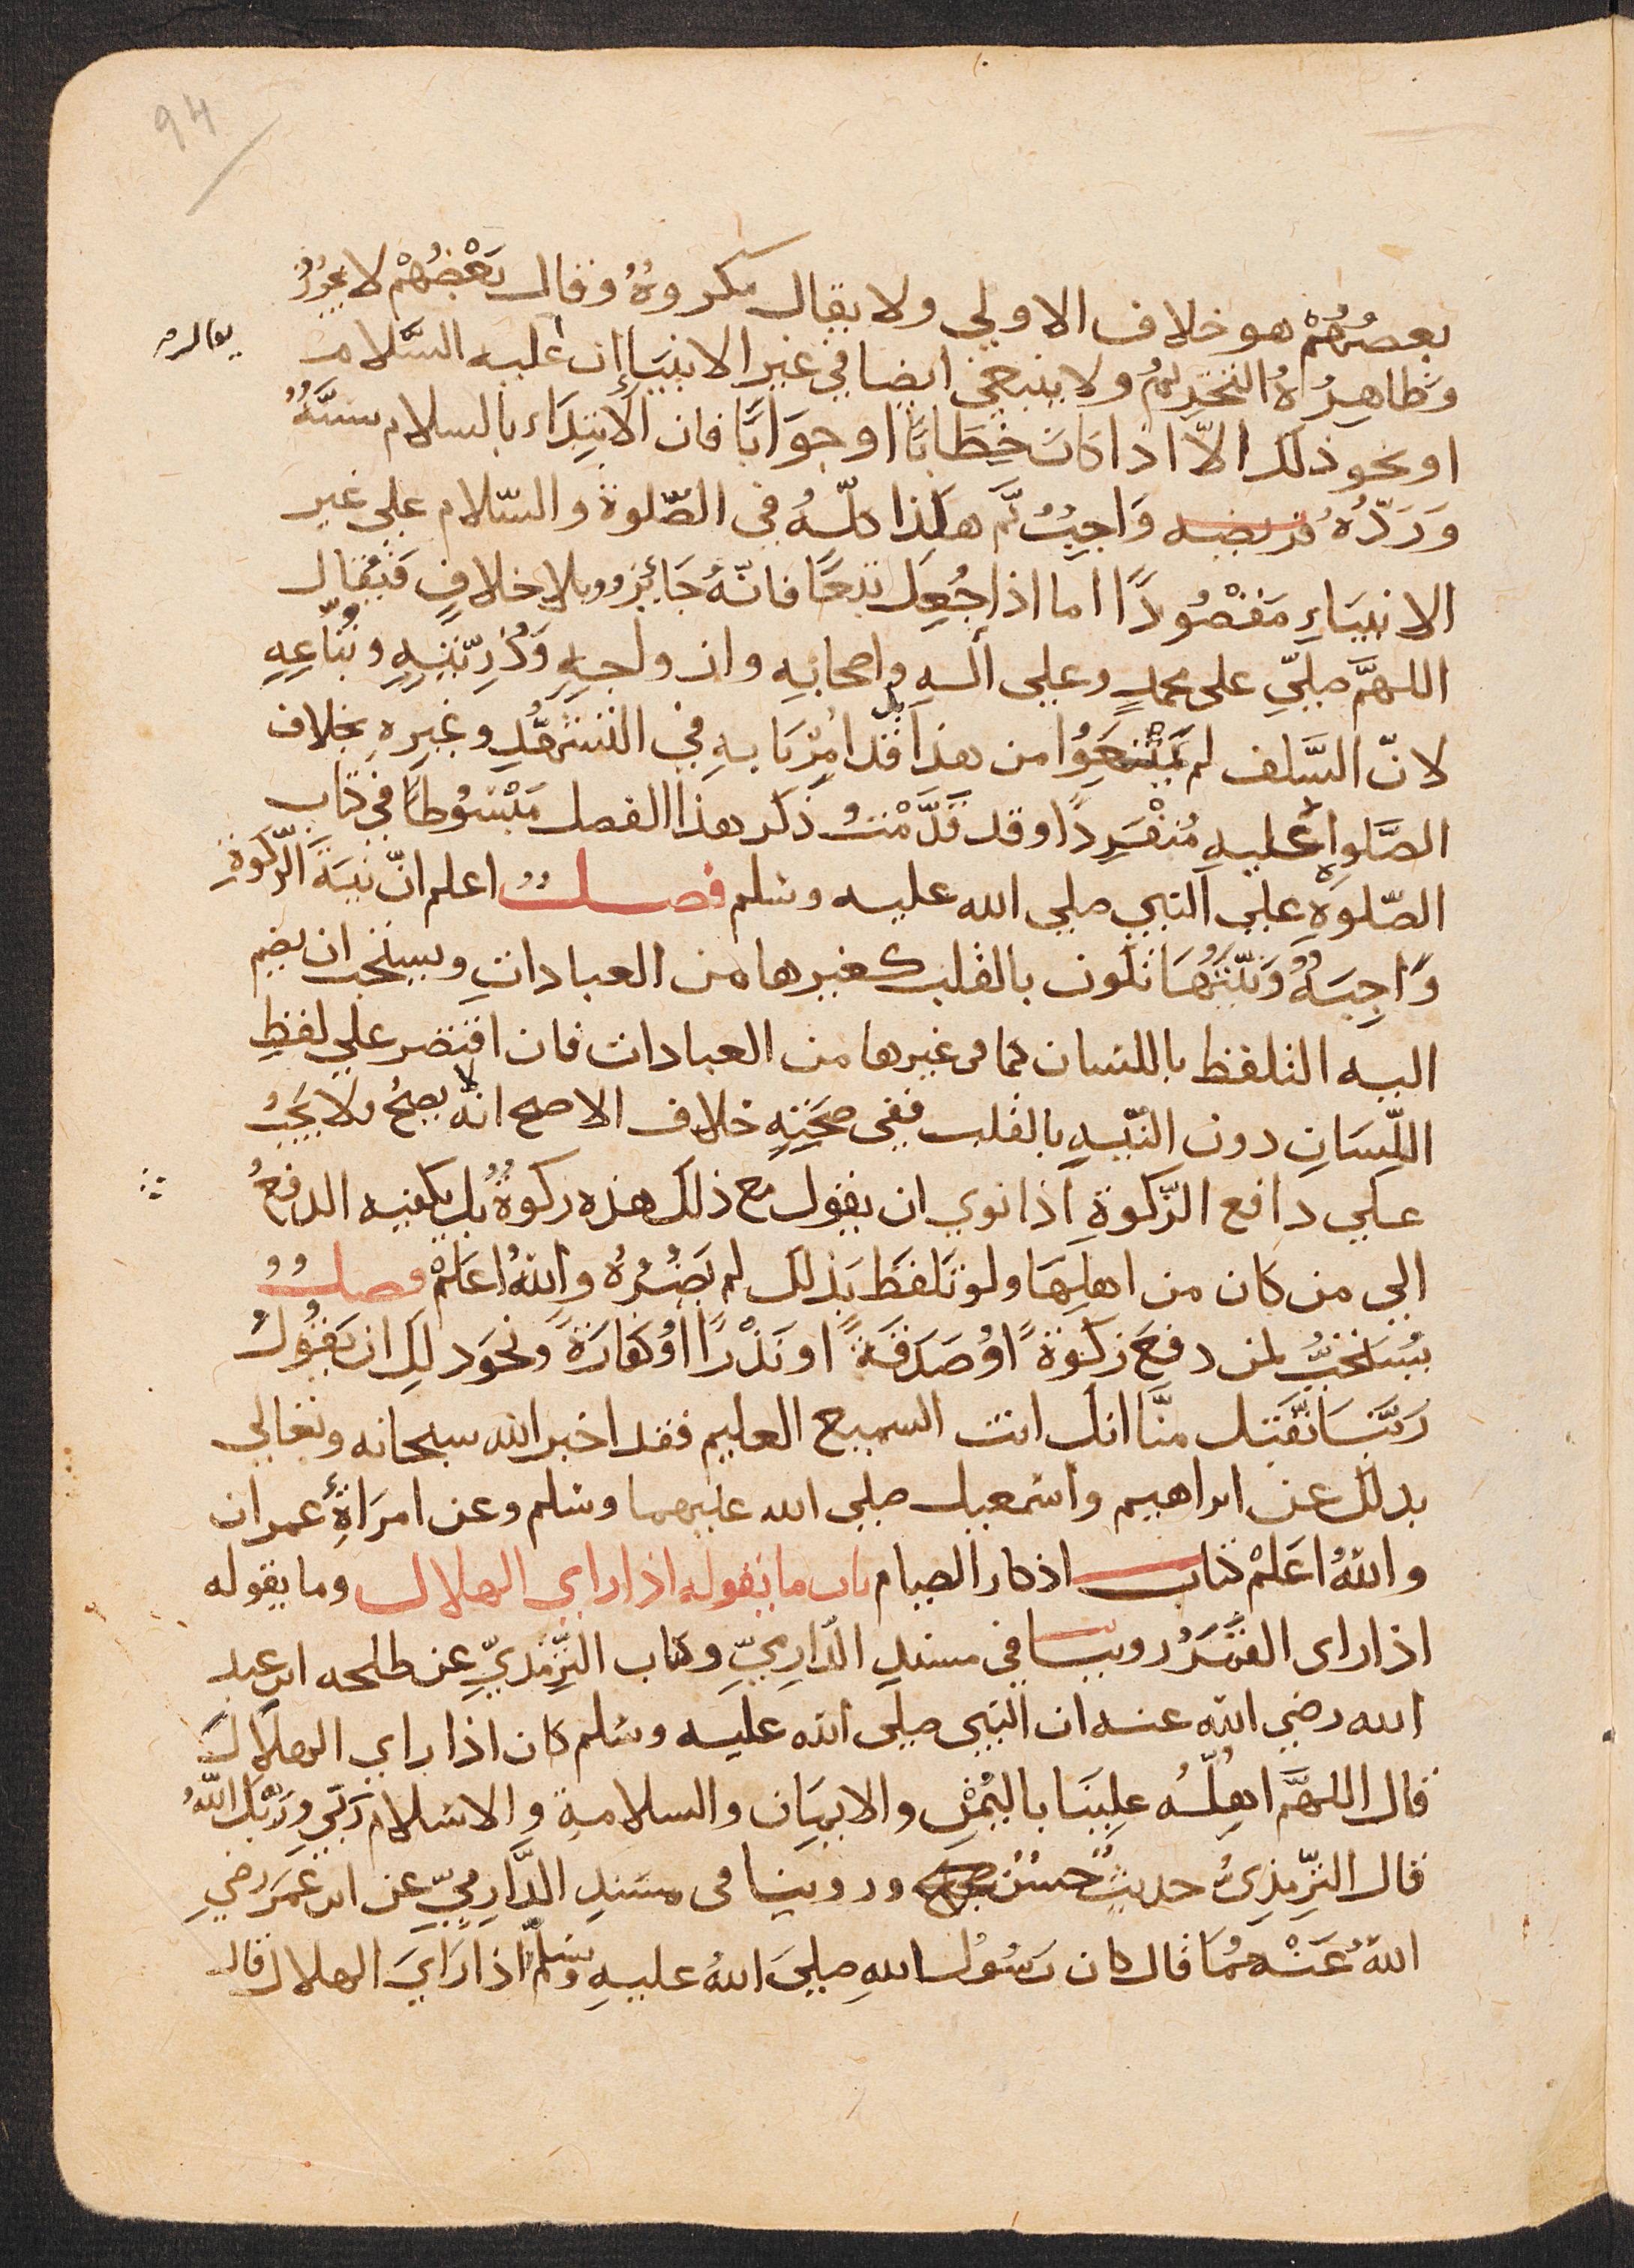 94
بعضُهُمْ هو خلاف الاولي ولا يقال مكروهٌ وقال بَعْضُهُمْ لا يجُوزُ
وَظاهِرُهُ التحْرِيمُ ولا ينبغي ايضا في غير الانبيَاء ان عليه السَّلام
او نحو ذلك الاّ اذا كانَ خِطَابًا او جوَابًا فان الابْتِدَاء بالسلام سنّةٌ
وَرَدّهُ فريضه وَاجِبٌ ثمَّ هكذا كلّهُ في الصّلوة والسّلام علي غير
الانبيَاءِ مَقْصُودًا اما اذا جُعِلَ تبعًا فانّهُ جَائِز وبلا خلافٍ فَيُقال
اللهمَّ صلّيِ على محمدٍ وعلى الهِ واصحابهِ وازواجِهِ وَذُرِّيّتِهِ وتُبّاعِهِ
لانّ السَّلف لم يَمْتنِعَوُا من هذا قد امِرْنَا بهِ في التشهُّدِ وغيرِهِ بخلاف
الصَّلواة عليهِ مُنفْرِدًا وقد قَدَّمْتُ ذكر هذا الفصل مَبْسُوطًا في كتاب
الصّلوةِ علي النبيّ صلي الله عليه وسلم فصلٌ اعلم انّ نيةَ الزّكوَةِ
وَاجِبَةٌ وَنيّتُهَا تكون بالقلب كغيرها من العبادات ويستحب ان يضم
اليه التلفظ باللسان كما في غيرها من العبادات فان اقتصر علي لفظِ
اللّسَانِ دون النيّهِ بالقلب ففي صحّتِهِ خلاف الاصح انهُ لا يصحُ ولا يَجبُ
علي دافع الزّكوةِ اذا نوي ان يقول مع ذلك هذه زكوةٌ بل يكفيه الدفعُ
الي من كان من اهلِهَا ولو تلفظَ بذلك لم يَضُرُهُ واللهُ اعلمْ فصلٌ
يُسْتحَبُّ لمن دفعَ زكوَةً اوْ صَدَقةً او نَذْرًا اوْ كفارَةً ونحوَ ذلِكَ ان يَقوُلَ
رَبَّنَا تقَبّل منَّا انك انت السميع العليم فقد اخبر الله سبحانه وتعالي
بذلك عن ابراهيم واسْمعيل صلي الله عليهما وسلم وعن امرَاةِ عمران
واللهُ اعَلمْ كتاب اذكار الصيام باب ما يقوله اذا راي الهلال وما يقوله
اذا راى القمَرَ روينا في مسندِ الدّارِميّ وكتاب التِّرمذيِّ عن طلحه ابن عبد
الله رضي الله عنه ان النبي صلى الله عليه وسلم كان اذا راي الهلالَ
قال اللهمَّ اهِلّهُ علينَا باليُمْنِ والايمَان والسلامةِ والاسْلام رَبّي وَربّكَ اللهُ
قال التِّرمِذِيُّ حديثٌ حسَنٌ وروينا في مسندِ الدَّارِمِيّ عن ابن عمَرَ رضي
اللهُ عَنْهُمَا قال كان رَسُولُ اللهِ صلي اللهُ عليهِ وسلّم اذا رَايَ الهلال قال